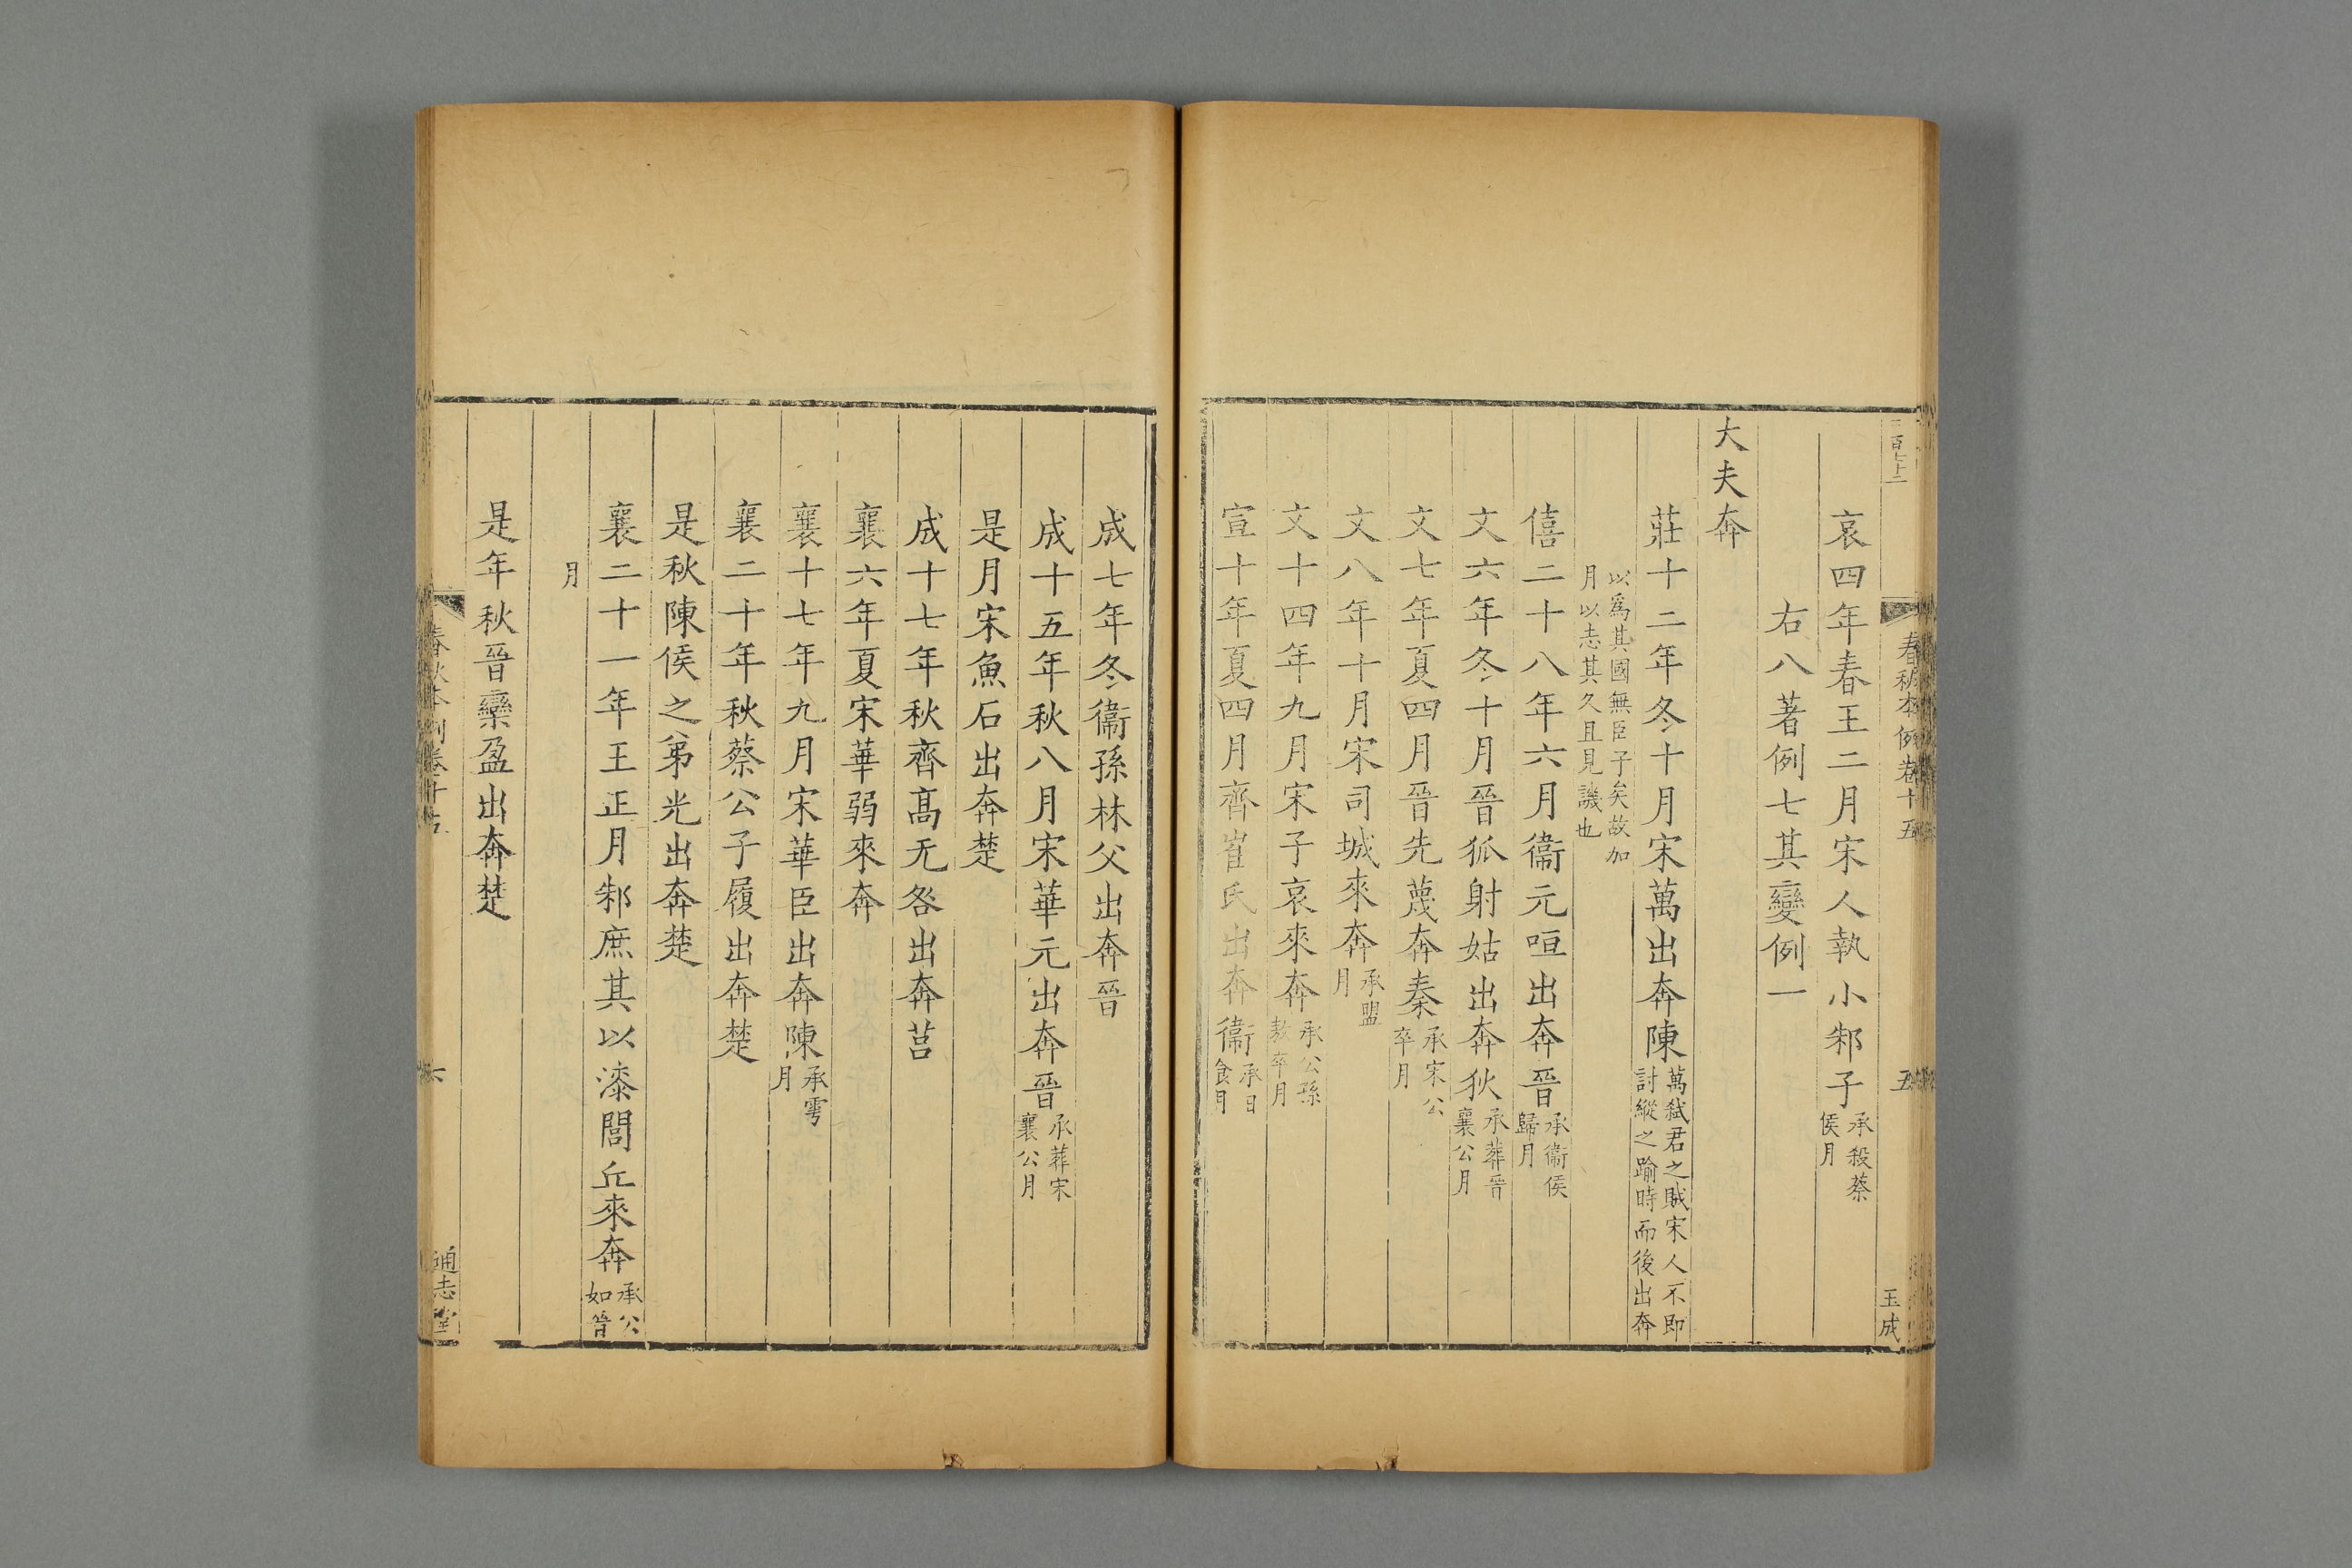 春秋本例卷十五
五
玉成
哀四年春王二月宋人執小邾子承殺蔡侯月
右八著例七其變例一
大夫奔
莊十二年冬十月宋萬出奔陳萬弑君之賊宋人不即討縱之踰時而後出奔
以爲其國無臣子矣故加月以志其久且見譏也
僖二十八年六月衞元咺出奔晉承衞侯歸月
文六年冬十月晉狐射姑出奔狄承葬晉襄公月
文七年夏四月晉先蔑奔秦承宋公卒月
文八年十月宋司城來奔承盟月
文十四年九月宋子哀來奔承公孫敖卒月
宣十年夏四月齊崔氏出奔衞承日食月
成七年冬衞孫林父出奔晉
成十五年秋八月宋華元出奔晉承葬宋襄公月
是月宋魚石出奔楚
成十七年秋齊髙无咎出奔莒
襄六年夏宋華弱來奔
襄十七年九月宋華臣出奔陳承雩月
襄二十年秋蔡公子履出奔楚
是秋陳侯之弟光出奔楚
襄二十一年王正月邾庶其以漆閭丘來奔承公如晉
月
是年秋晉欒盈出奔楚
春秋本例卷十五
六
通志堂